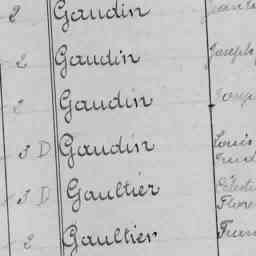 2 Gaudin
2 Gaudin Joseph
2 Gaudin
3 D Gaudin Louis
3 D Gaultier
2 Gaultier